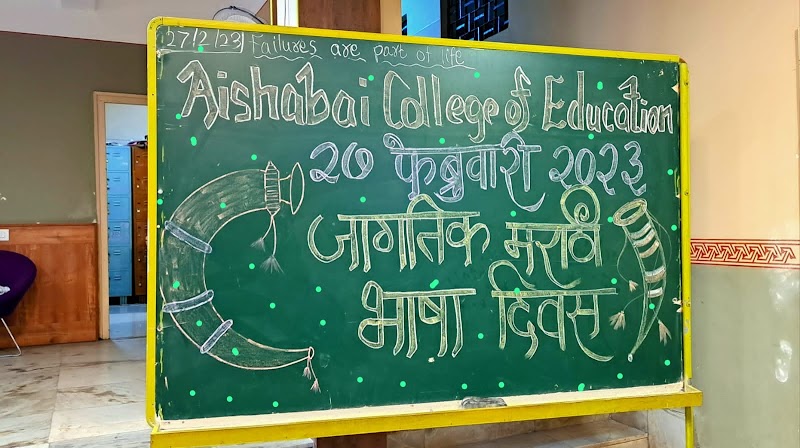 27/2/23 Failures are part of life
Aishabai College of Education
२७ फेब्रुवारी २०२३
जागतिक मराठी
भाषा दिवस